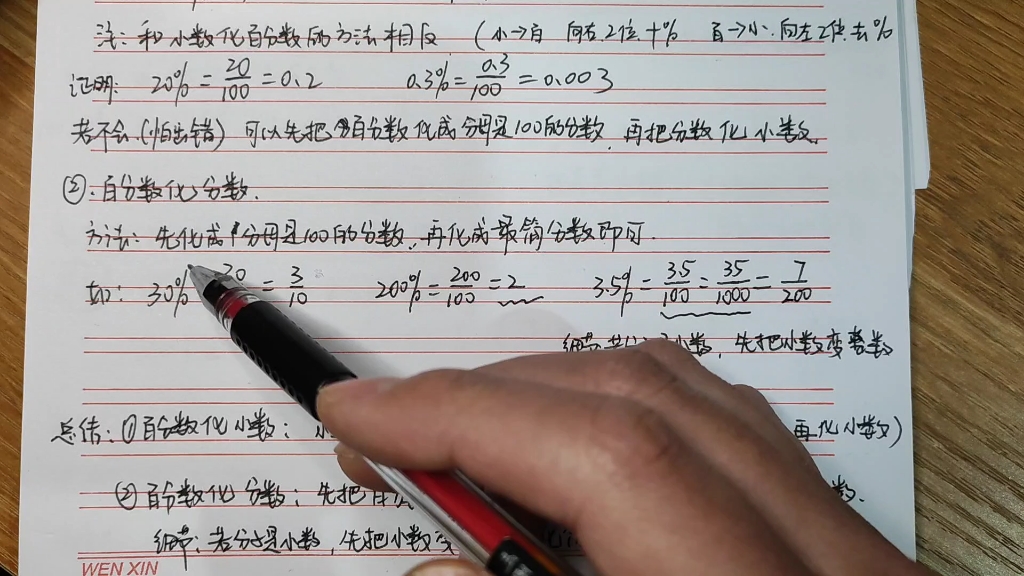 注: 和小数化百分数的方法相反 (小→百 向右2位+% 百→小.向左2位去%
证明: 20% = 20/100 = 0.2 0.3% = 0.3/100 = 0.003
若不会.(怕出错) 可以先把百分数化成分母是100的分数, 再把分数化小数.
②. 百分数化分数.
方法: 先化成分母是100的分数, 再化成最简分数即可.
如: 30% = 3/10 200% = 200/100 = 2 3.5% = 3.5/100 = 35/1000 = 7/200
小数, 先把小数变整数
总结: ①百分数化小数: 再化小数)
②百分数化分数: 先把百 数.
细节: 若分子是小数, 先把小数变
WEN XIN